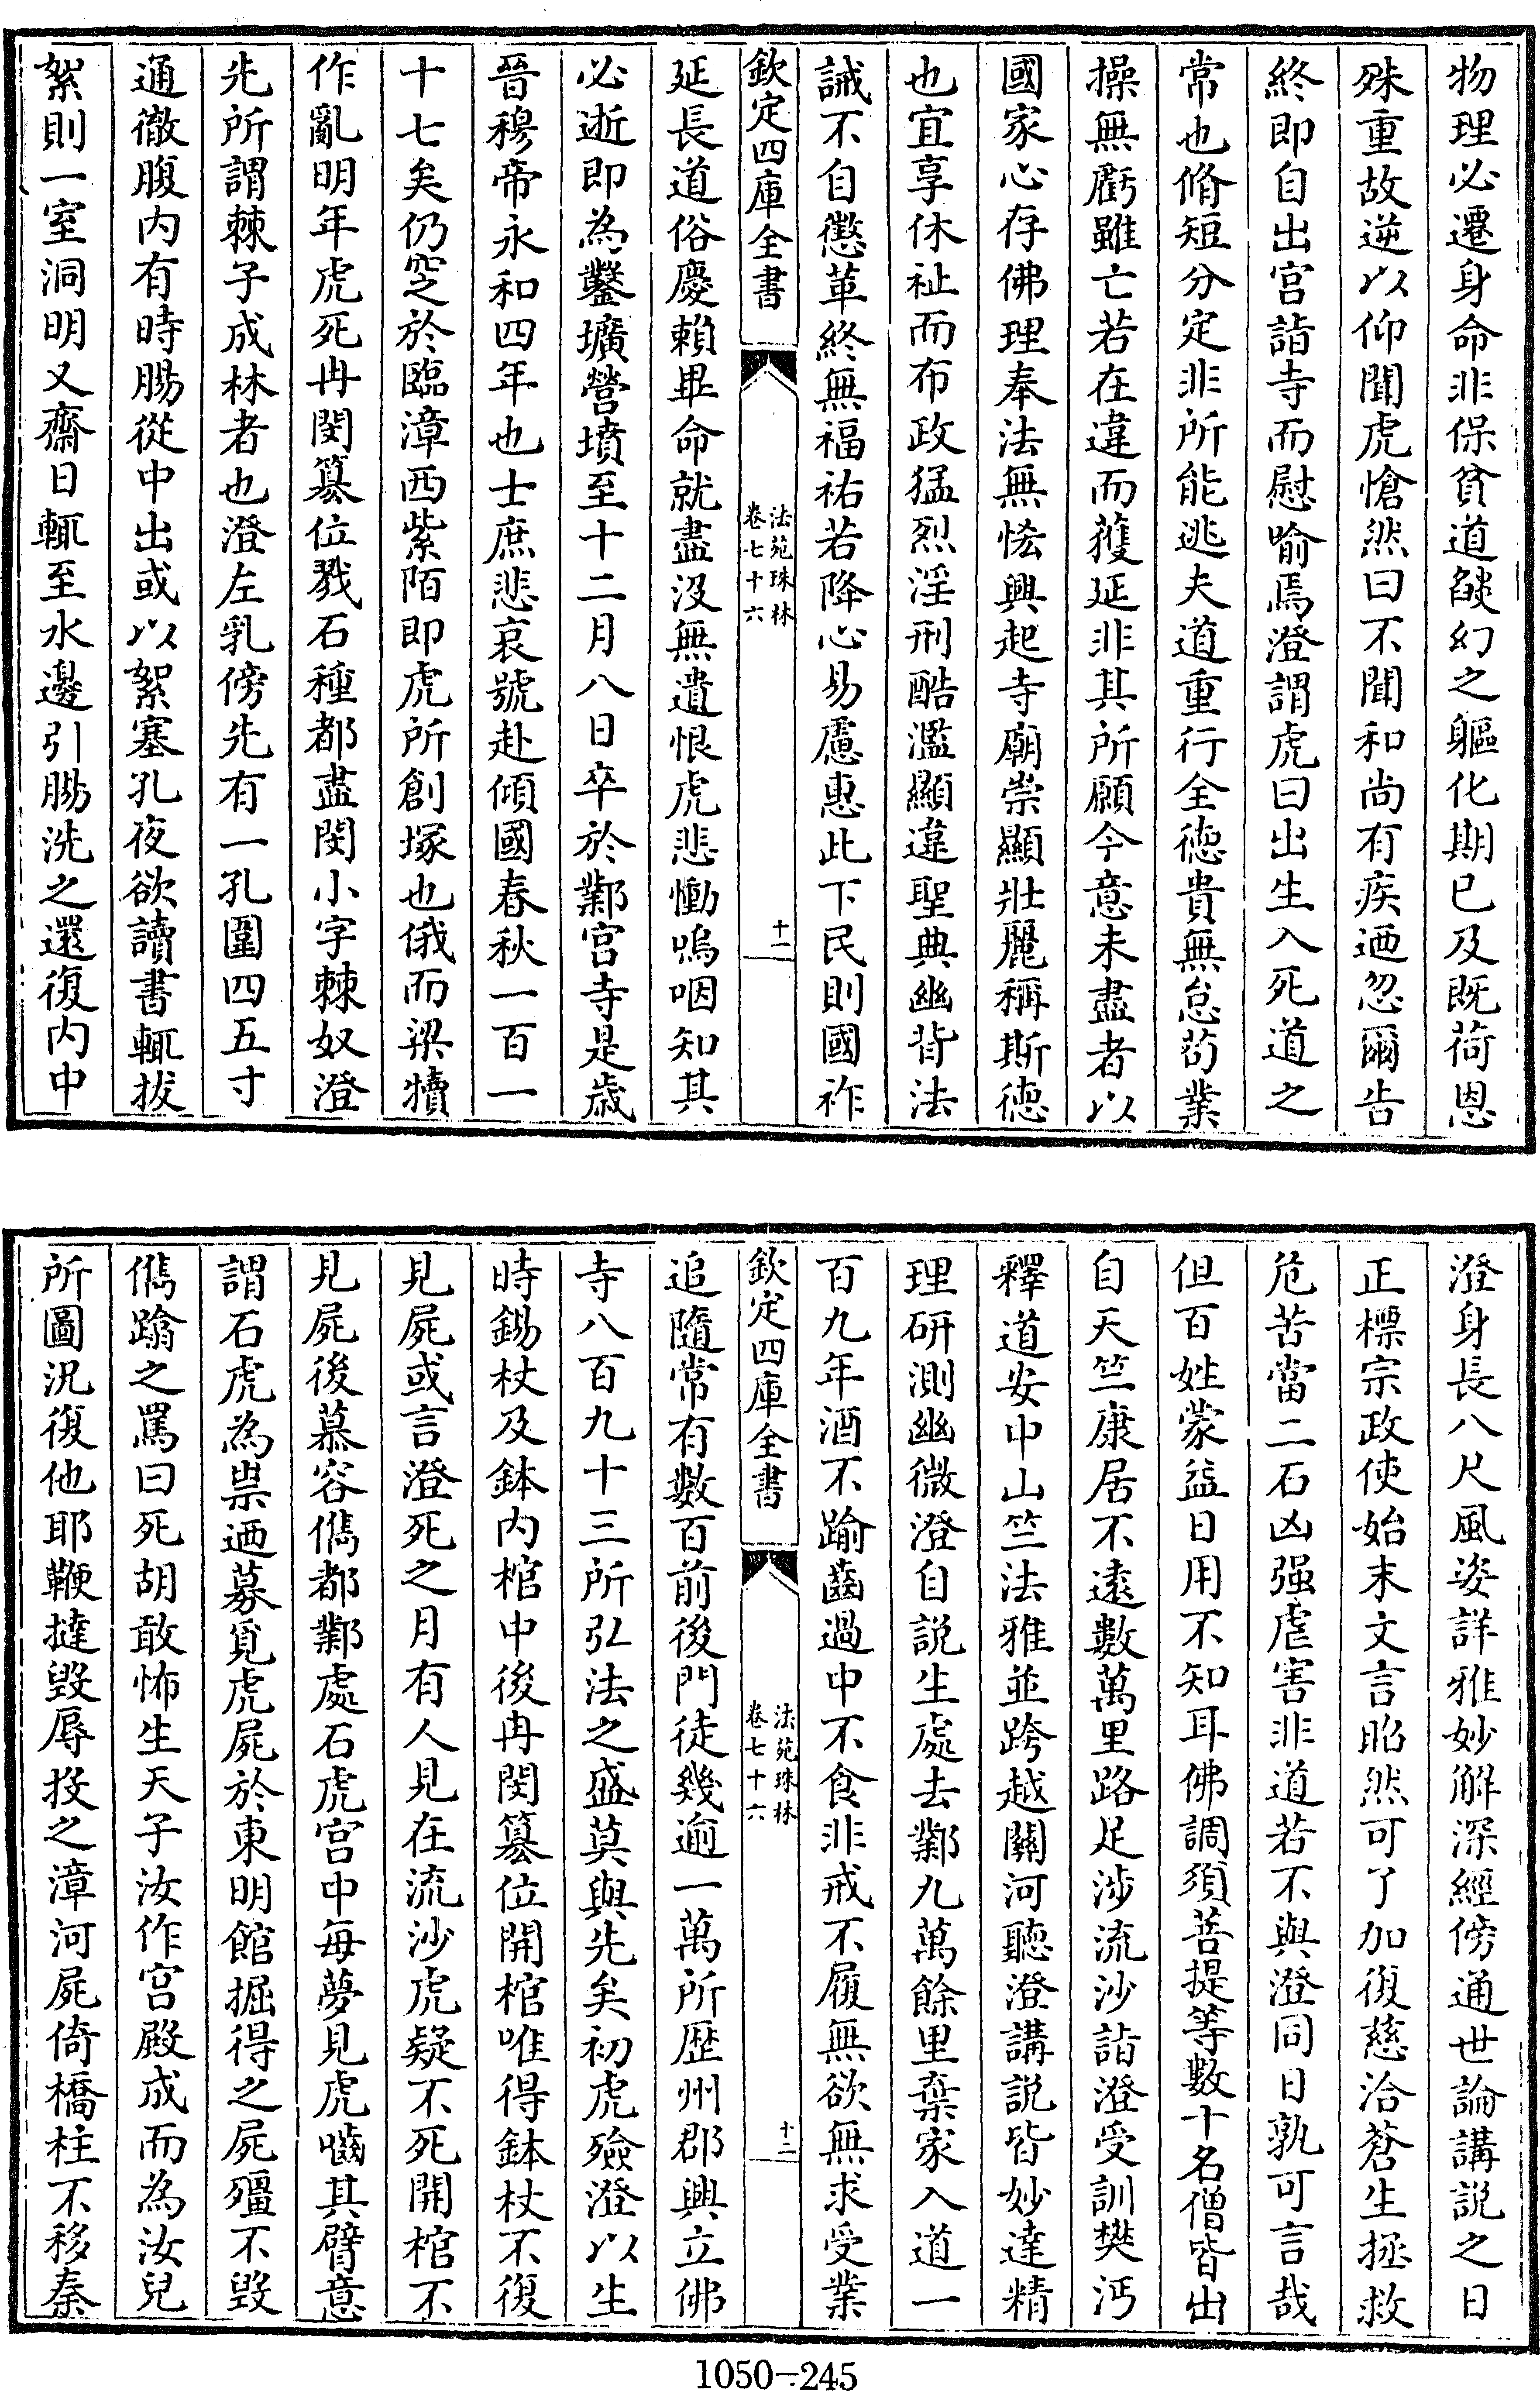 物理必遷身命非保貧道𦦨幻之軀化期已及既荷恩
殊重故逆以仰聞虎愴然曰不聞和尚有疾迺忽爾告
終即自出宫詣寺而慰喻焉澄謂虎曰出生入死道之
常也脩短分定非所能逃夫道重行全徳貴無怠茍業
操無虧雖亡若在違而獲延非其所願今意未盡者以
國家心存佛理奉法無恡興起寺廟崇顯壯麗稱斯徳
也宜享休祉而布政猛烈淫刑酷濫顯違聖典幽背法
誡不自懲革終無福祐若降心易慮惠此下民則國祚
欽定四庫全書
法苑珠林
卷七十六
十一
延長道俗慶賴畢命就盡没無遺恨虎悲慟嗚咽知其
必逝即為鑿壙營墳至十二月八日卒於鄴宫寺是歳
晉穆帝永和四年也士庶悲哀號赴傾國春秋一百一
十七矣仍窆於臨漳西紫陌即虎所創塚也俄而梁犢
作亂明年虎死冉閔簒位戮石種都盡閔小字棘奴澄
先所謂棘子成林者也澄左乳傍先有一孔圍四五寸
通徹腹内有時腸從中出或以絮塞孔夜欲讀書輒拔
絮則一室洞明又齋日輒至水邊引腸洗之還復内中
澄身長八尺風姿詳雅妙解深經傍通世論講説之日
正標宗政使始末文言昭然可了加復慈洽蒼生拯救
危苦當二石凶强虐害非道若不與澄同日孰可言哉
但百姓蒙益日用不知耳佛調須菩提等數十名僧皆出
自天竺康居不遠數萬里路足涉流沙詣澄受訓樊沔
釋道安中山竺法雅並跨越關河聽澄講説皆妙達精
理研測幽微澄自説生處去鄴九萬餘里棄家入道一
百九年酒不踰齒過中不食非戒不履無欲無求受業
欽定四庫全書
法苑珠林
卷七十六
十二
追隨常有數百前後門徒幾逾一萬所歴州郡興立佛
寺八百九十三所弘法之盛莫與先矣初虎殮澄以生
時錫杖及鉢内棺中後冉閔簒位開棺唯得鉢杖不復
見屍或言澄死之月有人見在流沙虎疑不死開棺不
見屍後慕容儁都鄴處石虎宫中每夢見虎嚙其臂意
謂石虎為祟迺募覓虎屍於東明館掘得之屍殭不毁
儁蹋之罵曰死胡敢怖生天子汝作宫殿成而為汝兒
所圖況復他耶鞭撻毁辱投之漳河屍倚橋柱不移秦
1050-245